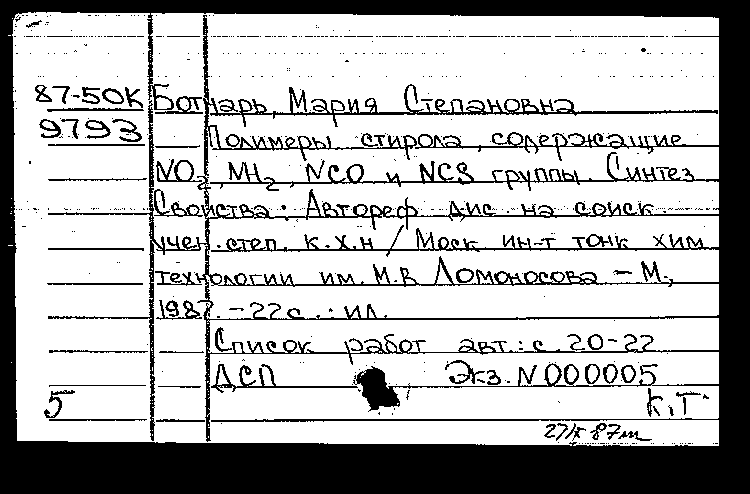 87-50К Ботнарь, Мария Степановна
9793 Полимеры стирола, содержащие
NO2, NH2, NCO и NCS группы. Синтез
Свойства: Автореф дис на соиск
учен. степ. к.х.н / Моск ин-т тонк хим
технологии им. М.В Ломоносова - М.,
1987. - 22 с. : ил.
Список работ авт.: с 20-22
ДСП Экз. N 000005
5 К.Т